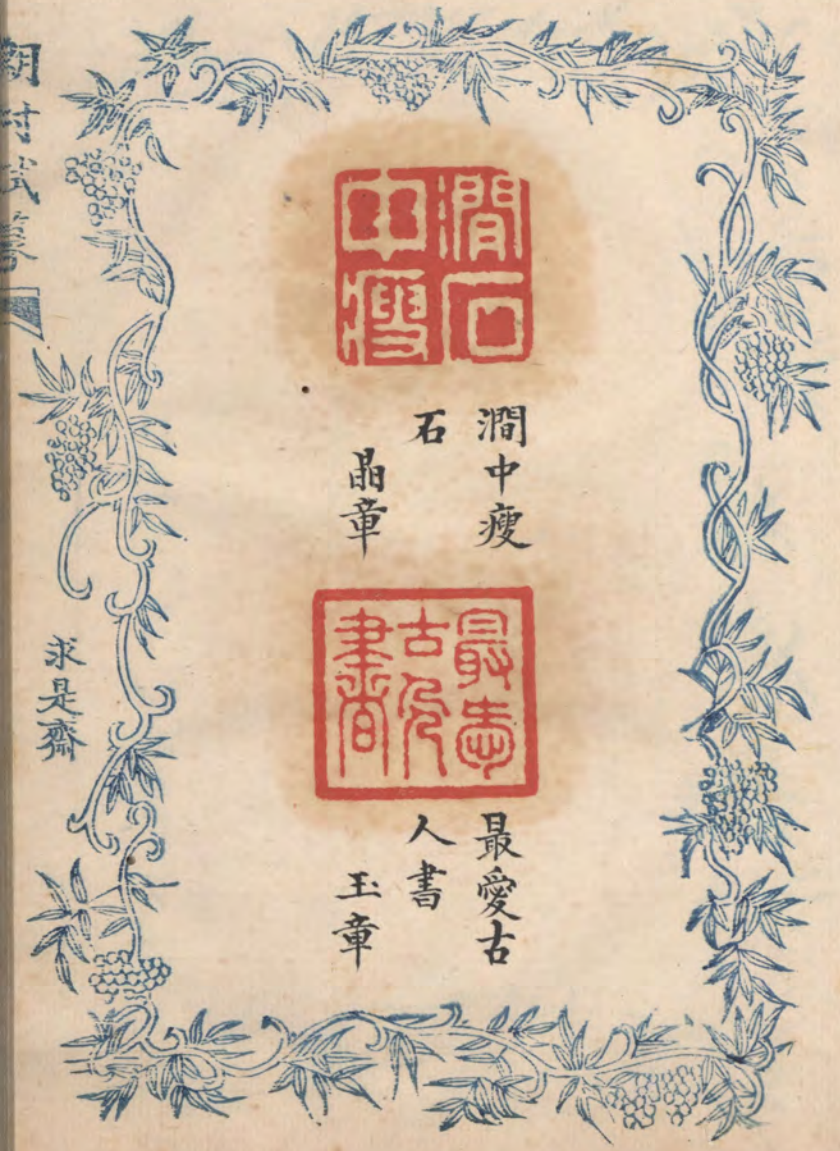 澗石
中瘦
澗中瘦
石
晶章
最愛
古人
書
最愛古
人書
玉章
求是齋